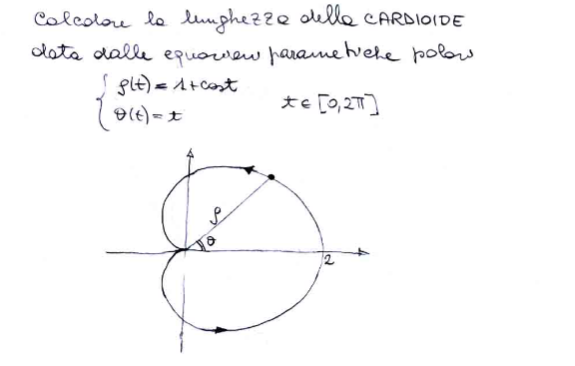 Calcolare la lunghezza della CARDIOIDE
data dalle equazioni parametriche polari
ρ(t) = 1+cost
θ(t) = t
t ∈ [0,2π]
ρ
θ
2